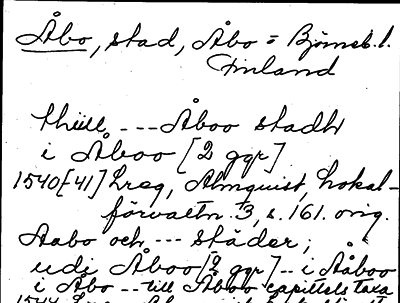 Åbo, stad, Åbo = Björneb. l.
Finland
thill --- Åboo stadh
i Åboo [2 ggr]
1540[-41] Lreg, Almquist, Lokal-
förvaltn. 3, s. 161. orig.
Aabo och --- städer;
udi Åboo [2 ggr] -- i Aåboo
i Åbo -- till Åboo capittels taxa